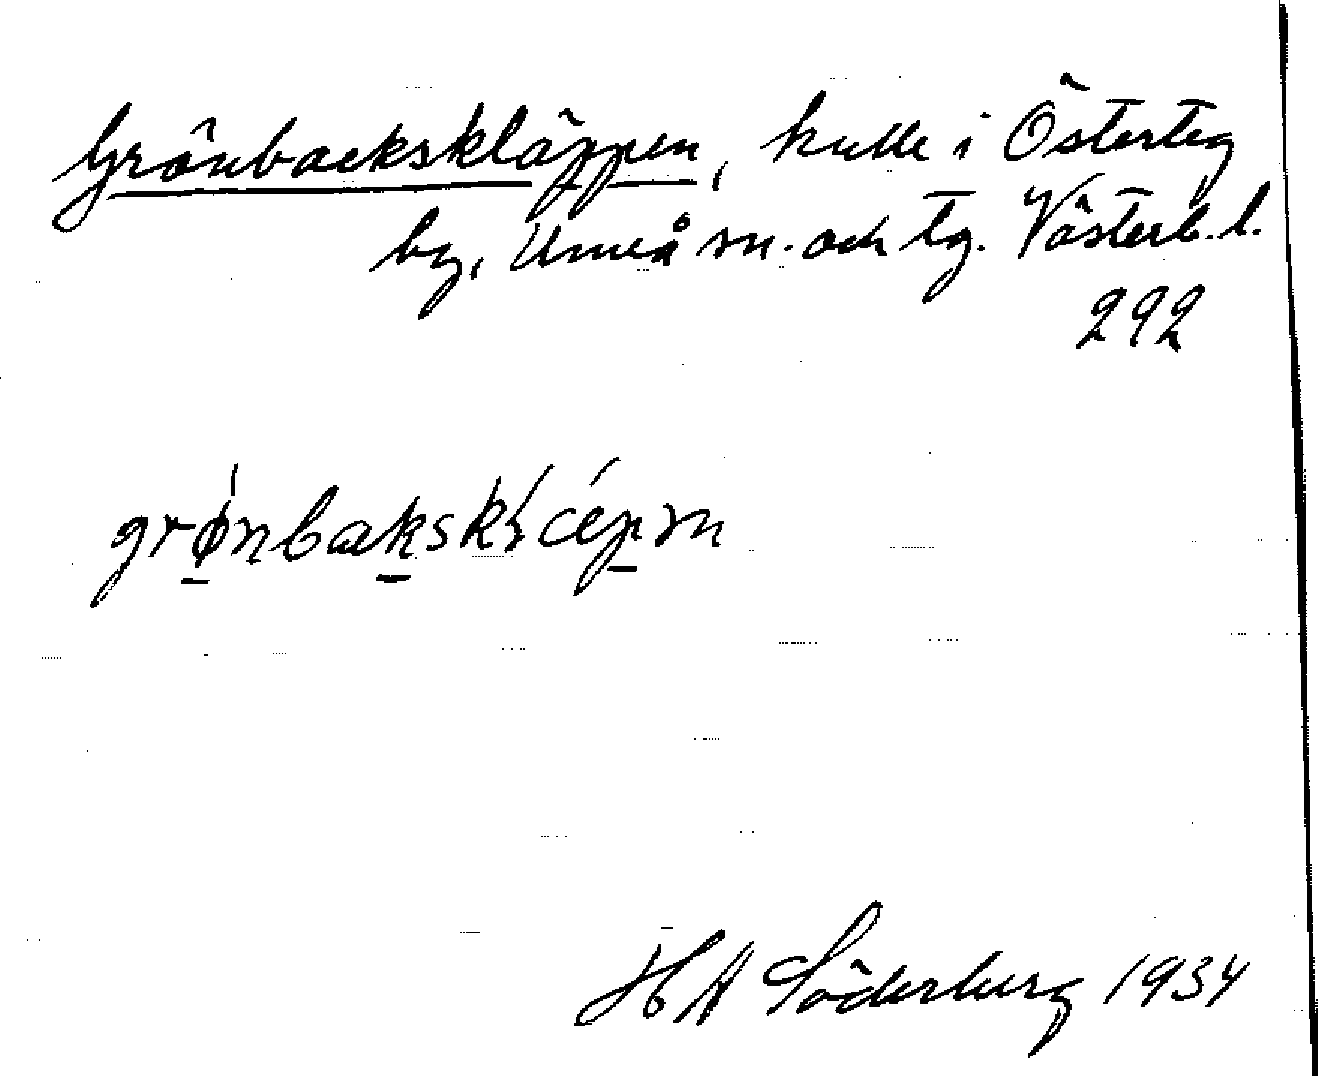 Grönbackskläppen, kulle i Österteg
by, Umeå sn. och tg. Västerb. l.
292
HA Söderberg 1934